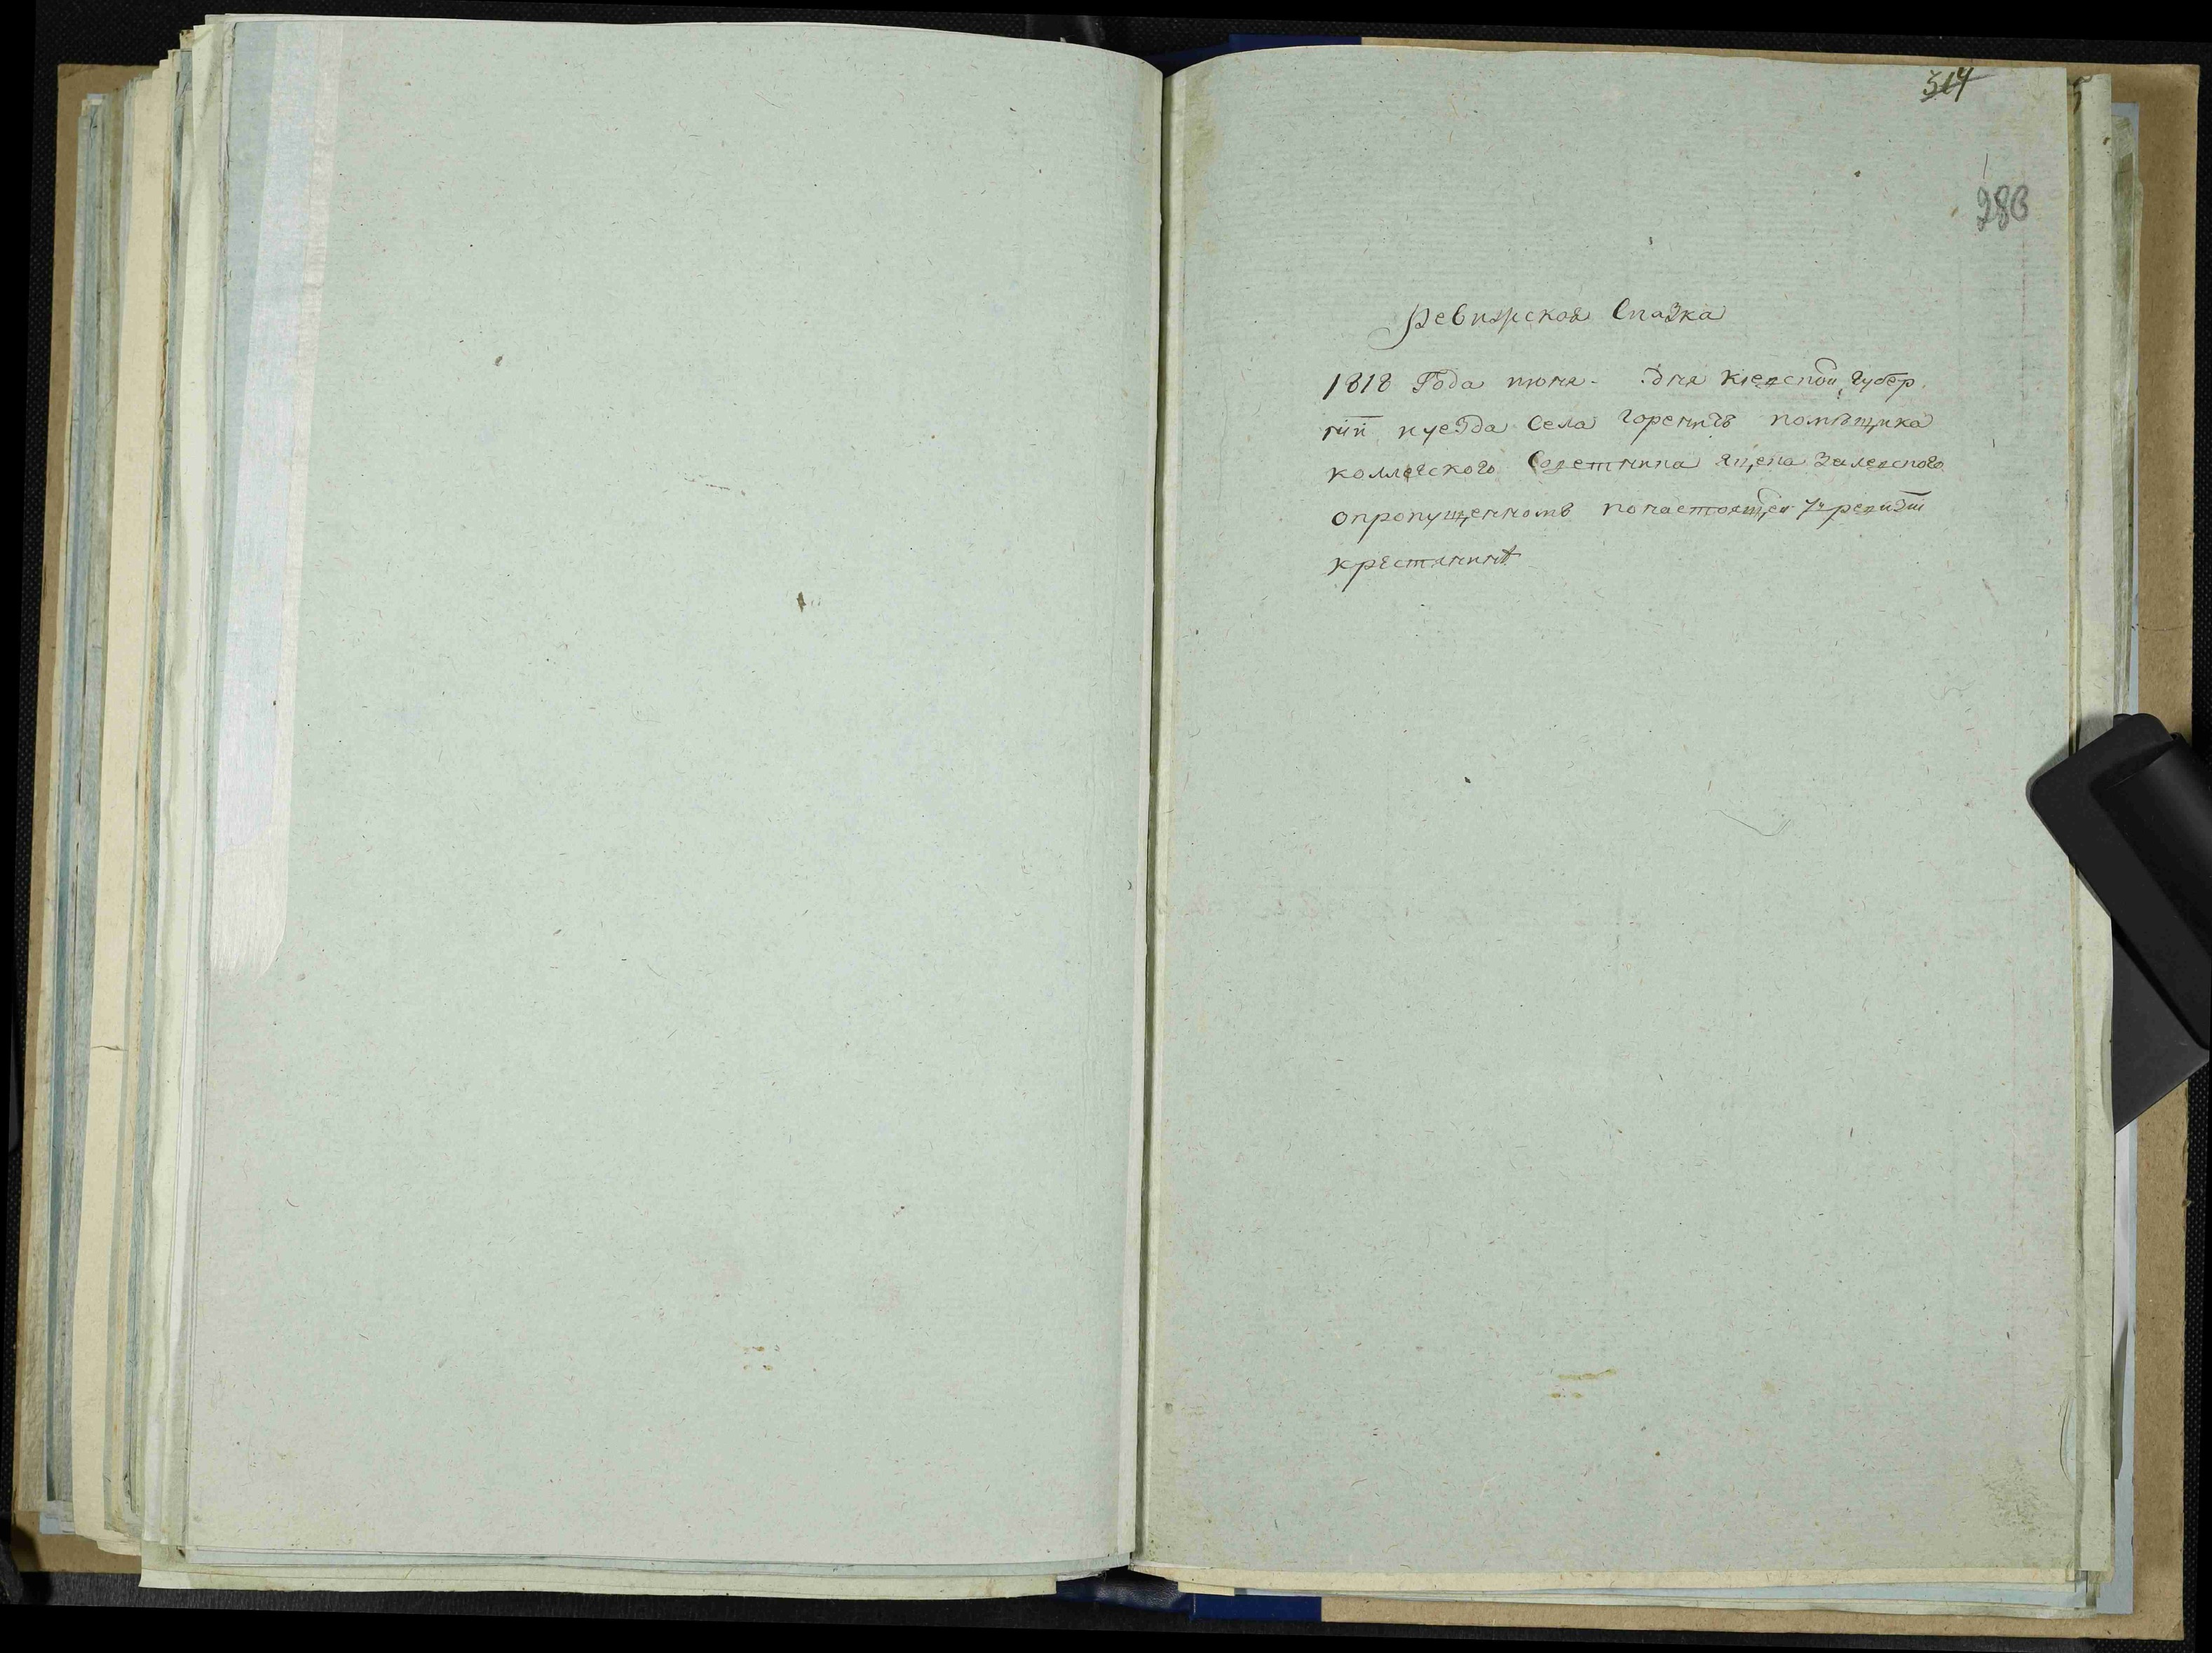 314
286
Ревизская Сказка
1818 Года июня - дня Киевской губер
нїи иуезда Села Горениче помѣщика
коллеского Советника Яцека Залеского
опропущенномъ понастоящей 7й ревизїи
крестянинѣ